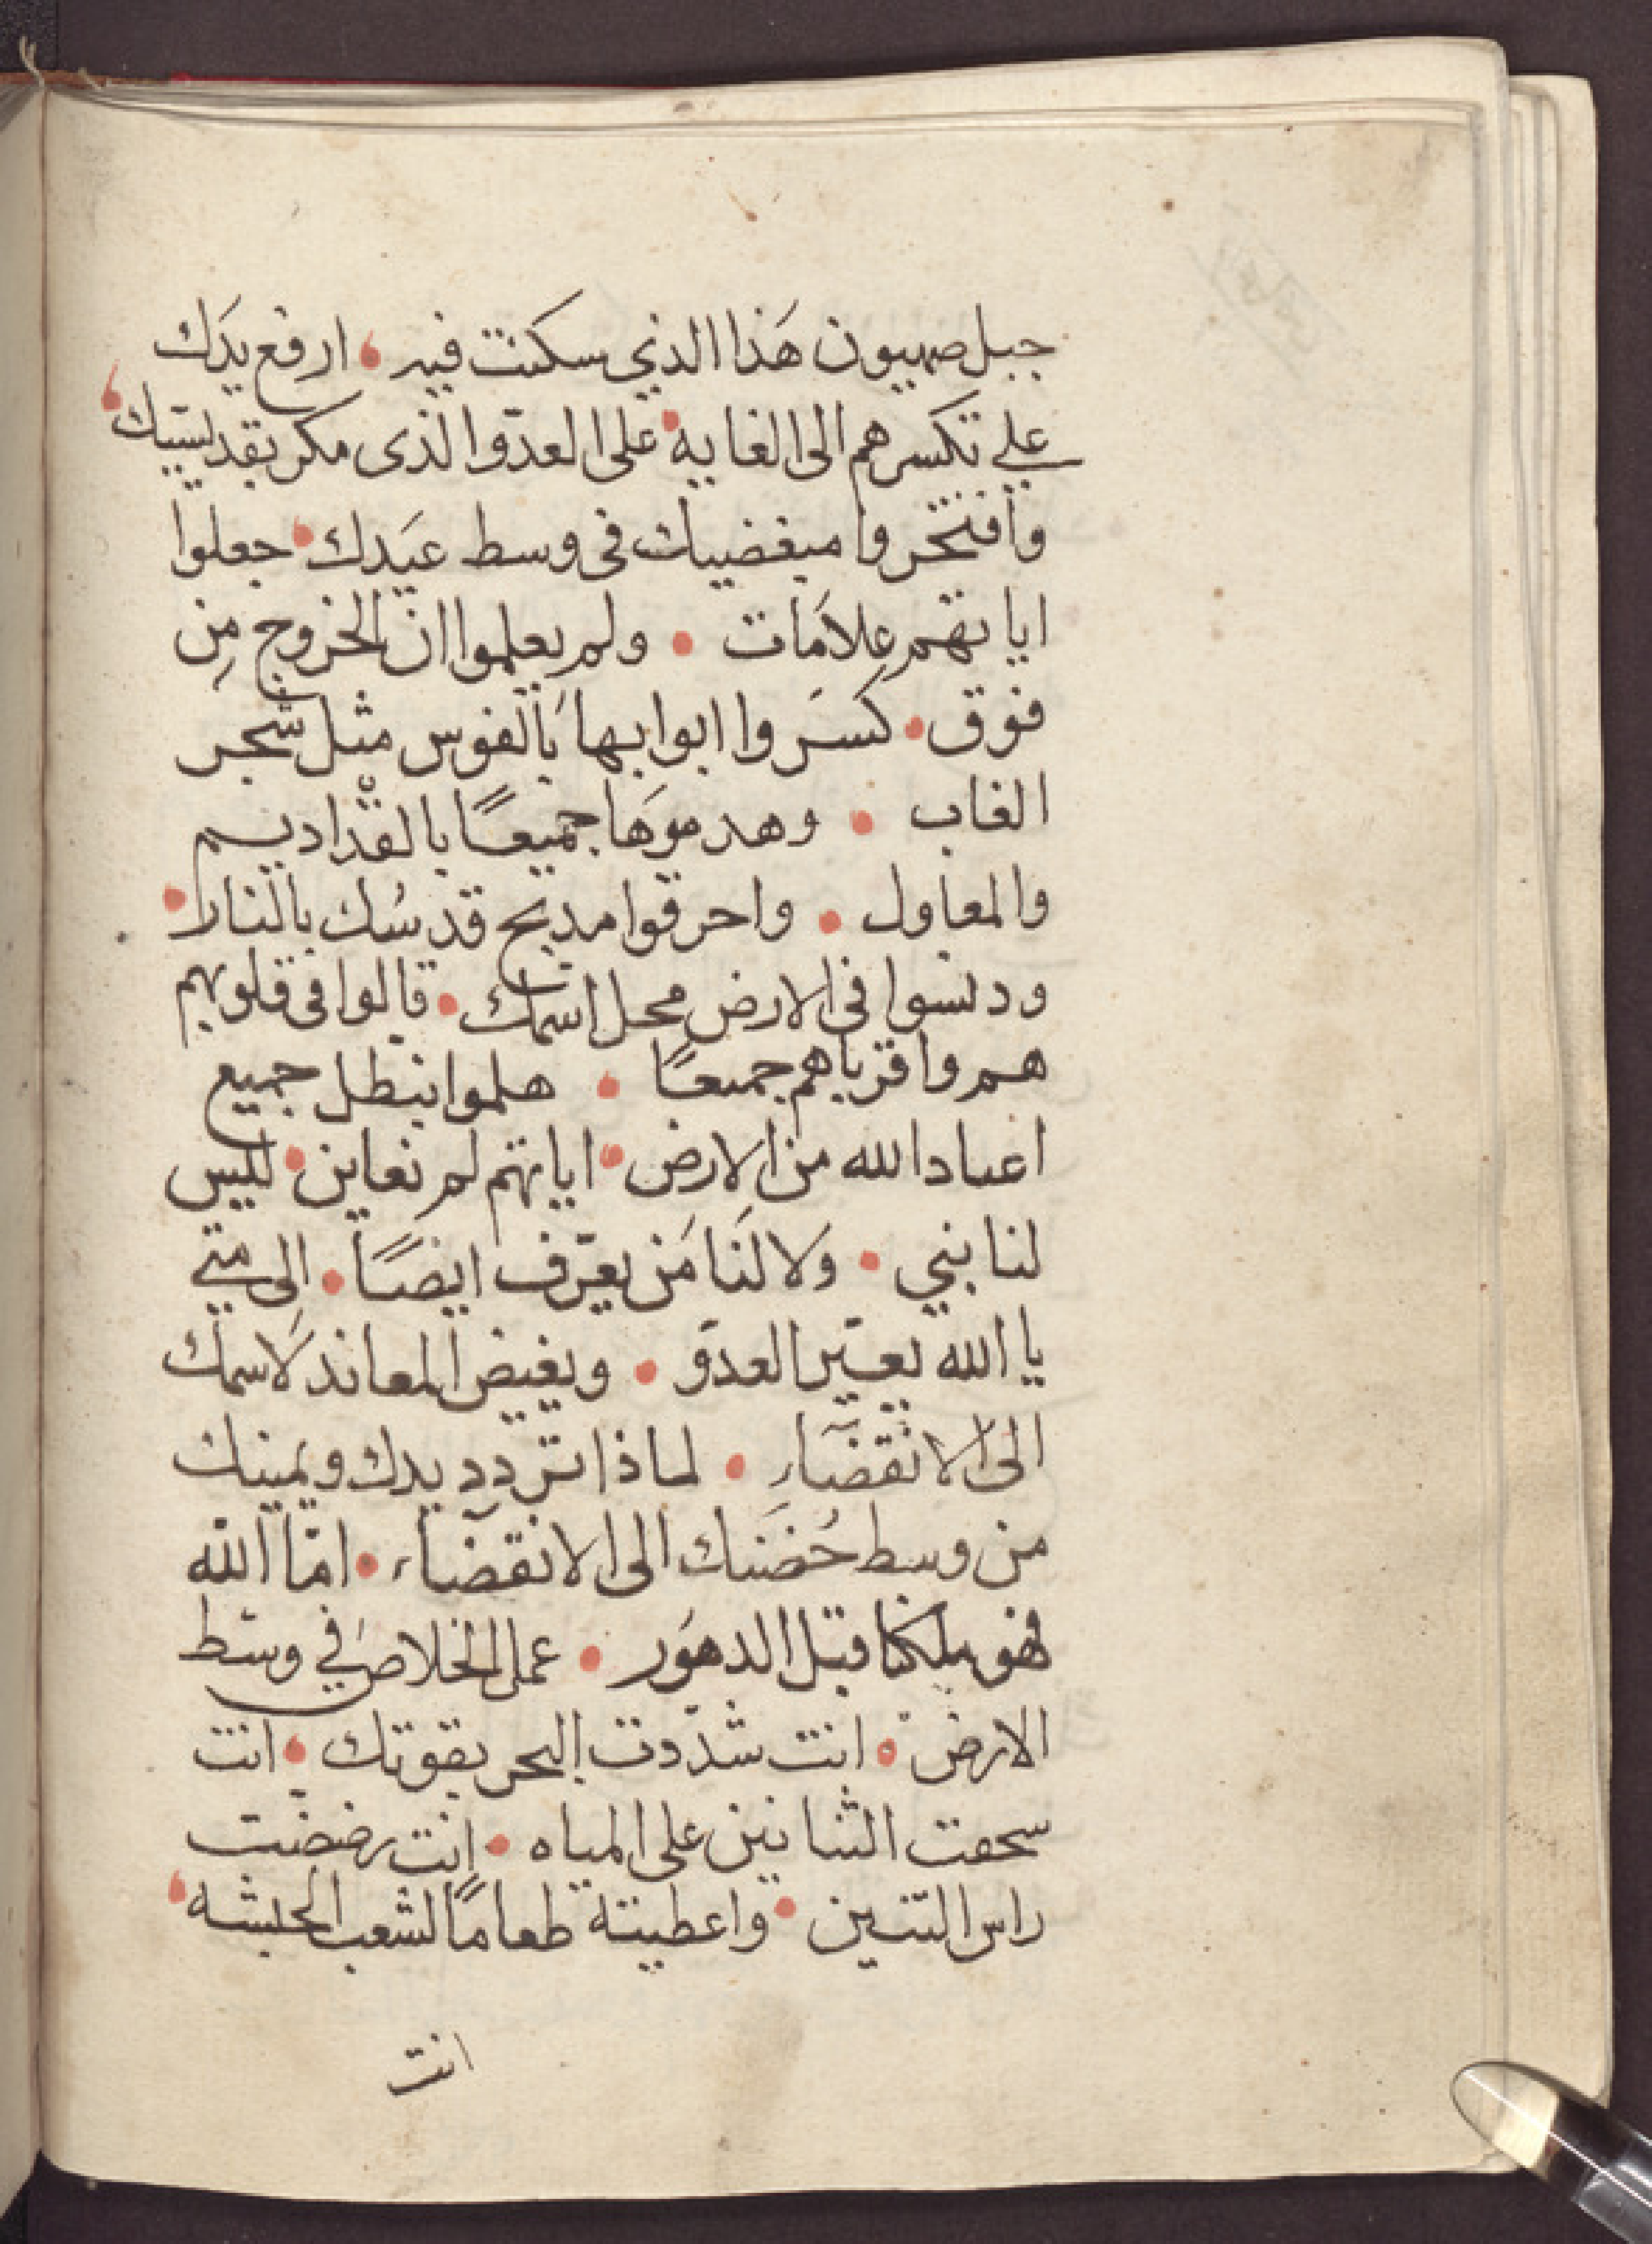 جبل صهيون هَذا الذي سكنت فيه • ارفع يدَك
علي تكسرهم الى الغايه • على العدوّ الذى مكر بقديسيك •
وافتخروا مبغضيك فى وسط عيَدك • جعلوا
اياتهم علامَات • ولم يعلموا ان الخروج مِن
فوق • كسَروا ابوابها بَالفوس مثل شجر
الغاب • وهدموَها جميعًا بالقداديم
والمعاول • واحرقوا مدبح قدسُك بالنار •
ودنسوا فى الارض محل اسمك • قالوا فى قلوبهم
هم واقرباهم جميعًا • هلموا نبطل جميع
اعياد الله من الارض • اياتهم لم نعاين • ليس
لنا نبي • وَلا لنَا مَن يعرّف ايضًا • الِى متي
يا الله يعيّر العدوّ • ويغيض المعاند لاَسمك
الى الانقضَآءِ • لماذا تردد يدك ويمينك
من وسط حُضَنك الى الانقضآء • امّا الله
فهو ملكنا قبل الدهوَر • عمل الخلاصَ في وسط
الارض • انت شدّدت البحر بقوتك • انت
سحقت التنانين على المياه • انت رضضت
راس التنين • واعطيتة طعامًا لشعب الحبشه •
انت